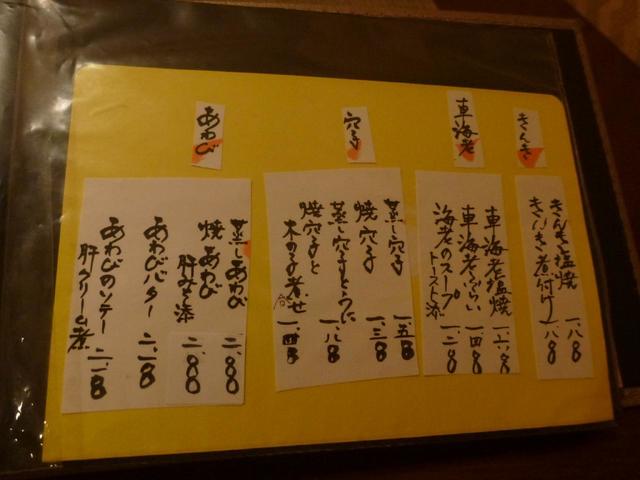 きんき
きんき塩焼 一、八〇
きんき煮付け 一、八〇
車海老
車海老塩焼 一、六〇
車海老ふらい 一、四〇
海老のスープ
トースト添 一、二〇
穴子
蒸し穴子 一、五〇
焼穴子 一、三〇
蒸し穴子とうに 一、八〇
焼穴子と
木の子煮合せ 一、四〇
あわび
蒸しあわび 二、〇〇
焼あわび
肝みそ添 二、〇〇
あわびバター 二、一〇
あわびのソテー
肝クリーム煮 二、一〇